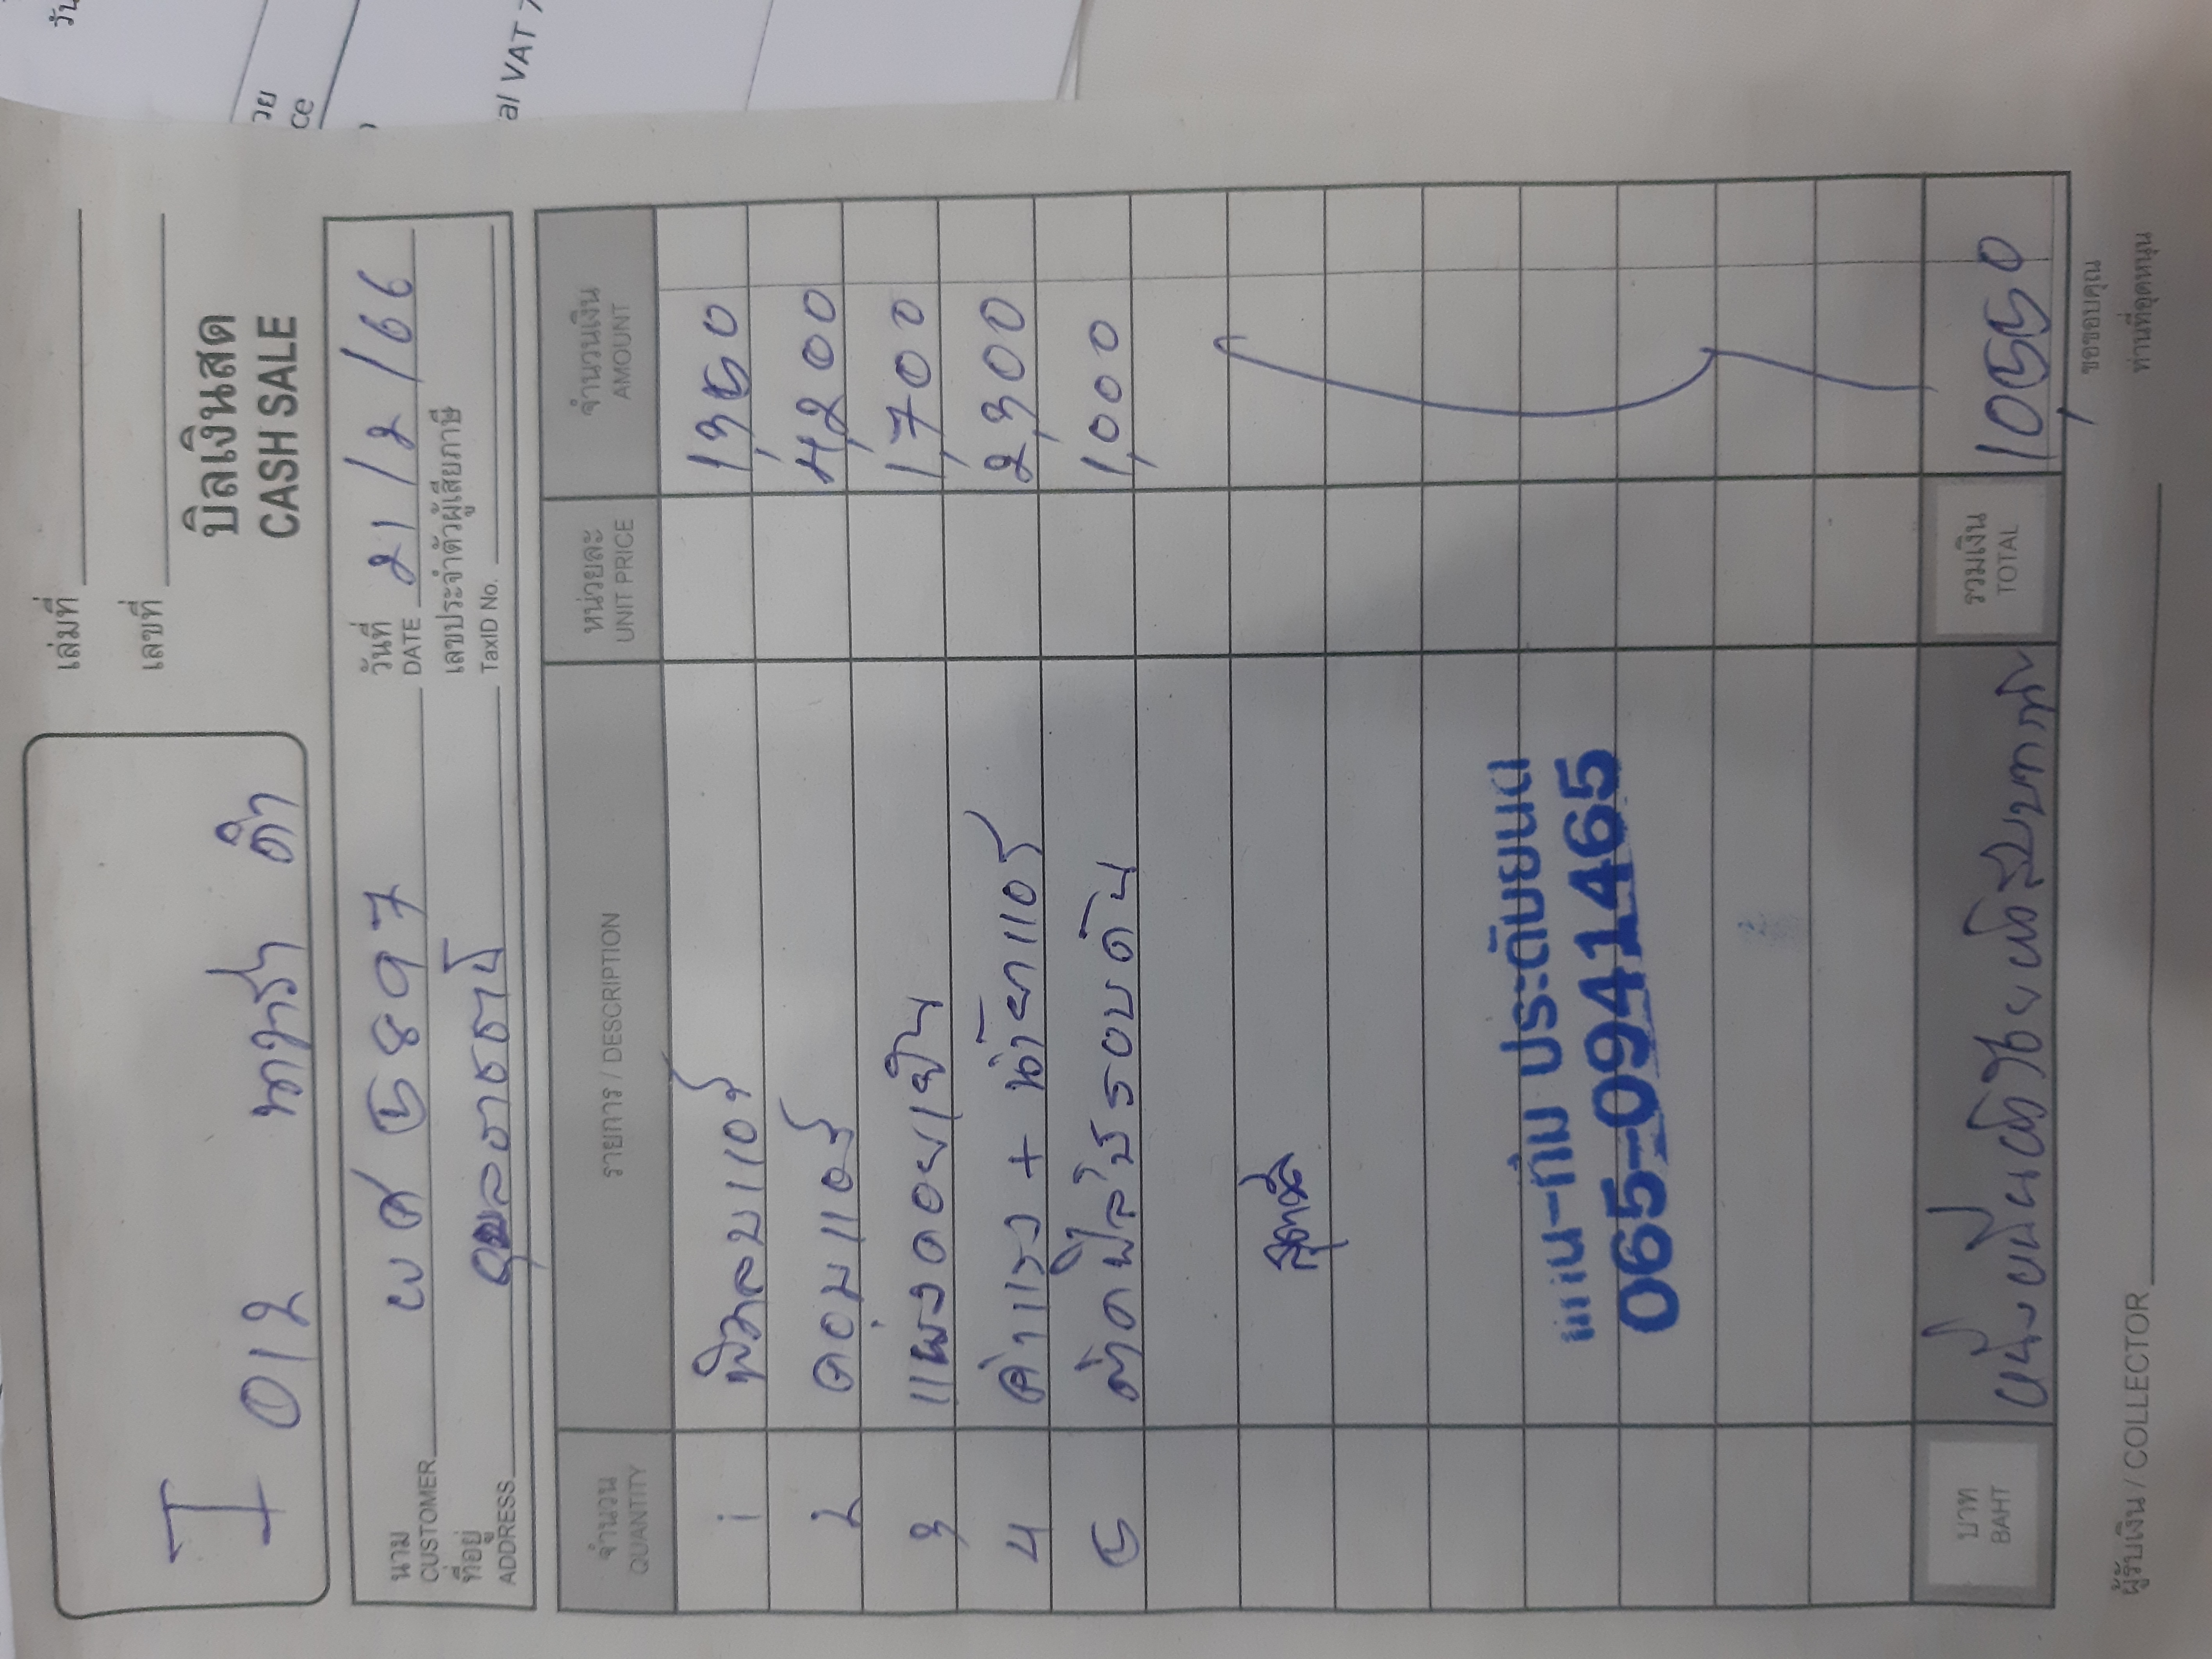 เล่มที่
เลขที่
บิลเงินสด
CASH SALE
I
012 ดำ
นาม
CUSTOMER
ผศ 5897
วันที่
DATE
21/2/66
ที่อยู่
ADDRESS
อุบลราชธานี
เลขประจำตัวผู้เสียภาษี
TaxID No.
จำนวน
QUANTITY
รายการ / DESCRIPTION
หน่วยละ
UNIT PRICE
จำนวนเงิน
AMOUNT
1 1,350
2 คอมแอร์ 4,200
3 แผงคอยเย็น 1,700
4 ค่าแรง + น้ำยาแอร์ 2,300
5 ติดฟิล์มรอบคัน 1,000
แมน-กิม ประดับยนต์
065-0941465
บาท
BAHT
หนึ่งหมื่นห้าร้อยห้าสิบบาท
รวมเงิน
TOTAL
10,550
ผู้รับเงิน / COLLECTOR
ขอขอบคุณ
ท่านที่อุดหนุน
วัน
วย
ce
al VAT 7